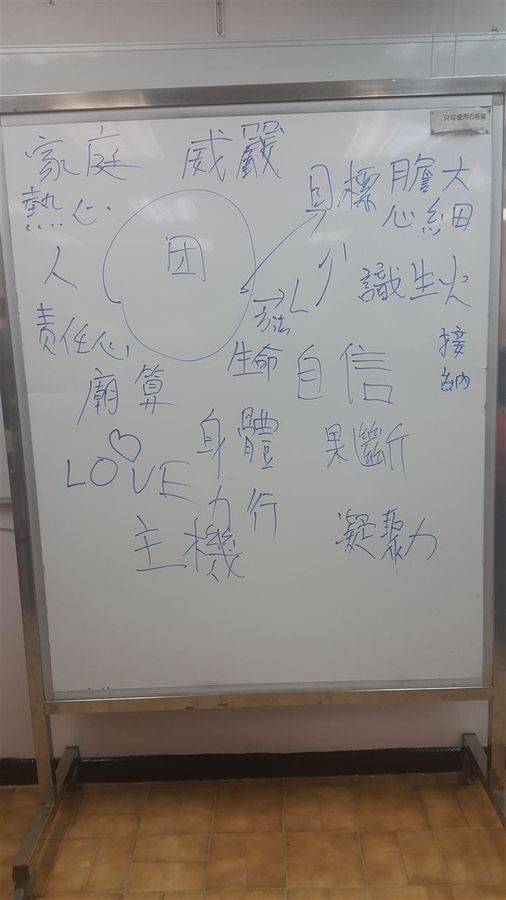 只可使用白板筆
家庭 威嚴
目標 膽大
心細
熱心
团
人
識生火
方法
責任心
生命 自信
接納
廟算
身體 果斷
LOVE
力行
主機 凝聚力